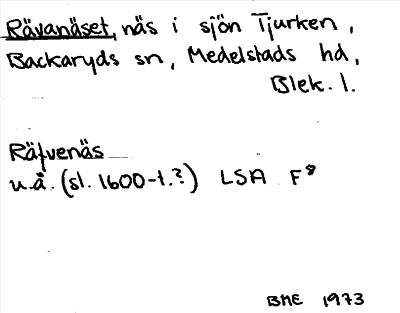 Rävanäset, näs i sjön Tjurken,
Backaryds sn, Medelstads hd,
Blek. l.
Räfvenäs
u.å. (sl. 1600-t.?) LSA F8
BME 1973